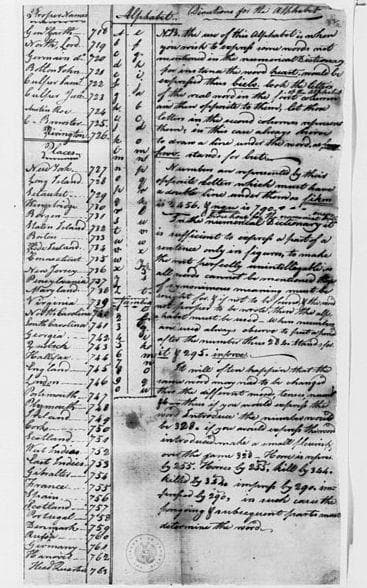 Proper Names
Gen. Garth 718
North, Lord 719
Germain 720
Bolton John 721
Culper Saml 722
Culper Junr 723
Austin Roe 724
C. Brewster 725
Rivington 726
Places
New York 727
Long Island 728
Setauket 729
Kingsbridge 730
Bergen 731
Staten Island 732
Boston 733
Rhode Island 734
Connecticut 735
New Jersey 736
Pensylvania 737
Maryland 738
Virginia 739
North Carolina 740
South Carolina 741
Georgia 742
Quebeck 743
Hallifax 744
England 745
London 746
Portsmouth 747
Plymouth 748
Ireland 749
Cork 750
Scotland 751
West Indies 752
East Indies 753
Gibralter 754
France 755
Spain 756
Scotland 757
Portugal 758
Denmark 759
Russia 760
Germany 761
Hanover 762
Head Quarters 763
Alphabet
a e
b f
c g
d h
e i
f j
g a
h b
i c
j d
k o
l m
m n
n p
o q
p r
q k
r l
s u
t v
u w
v x
w y
x z
y s
z t
Numbers
1 e
2 f
3 g
4 i
5 k
6 m
7 n
8 o
9 q
0 u
Directions for the Alphabet
N.B. the use of this Alphabet is when
you wish to express some words not
mentioned in the numerical Dictionary
for instance the word heart, would be
expressed thus biels. look the letters
of the real word in the first column of the alphabet
and then opposite to them, let those
letters in the second column represent
them; in this case always observe
to draw a line under the word as
fwv. stands for but.
Numbers are represented by their
opposite letters which must have
a double line under them as
is 2456. & nuu is 700.
In the numerical Dictionary it
is sufficient to express a part of a
sentence only in figures, to make
the rest perfectly unintelligible, as
all words cannot be mentioned, those
of synonimous meaning must be
sought for & if not to be found & the word
not proper to be wrote, then the alpha
habet must be used. When numbers
are used always observe to put a period
after the number thus 284. stands for
it & 295. inforce.
It will often happen that the
same word may need to be changed
thro the different moods, tenses numbers
thus if you would express the
word Introduce the number would
be 328. if you would express the word
introduced make a small flourish
over the same 328 - Horse is repres
by 255. Horses by 255. kill by 344.
killed by 344. impress by 290. im
pressed by 290. in such cases the
forgoing & subsequent parts must
determine the word.